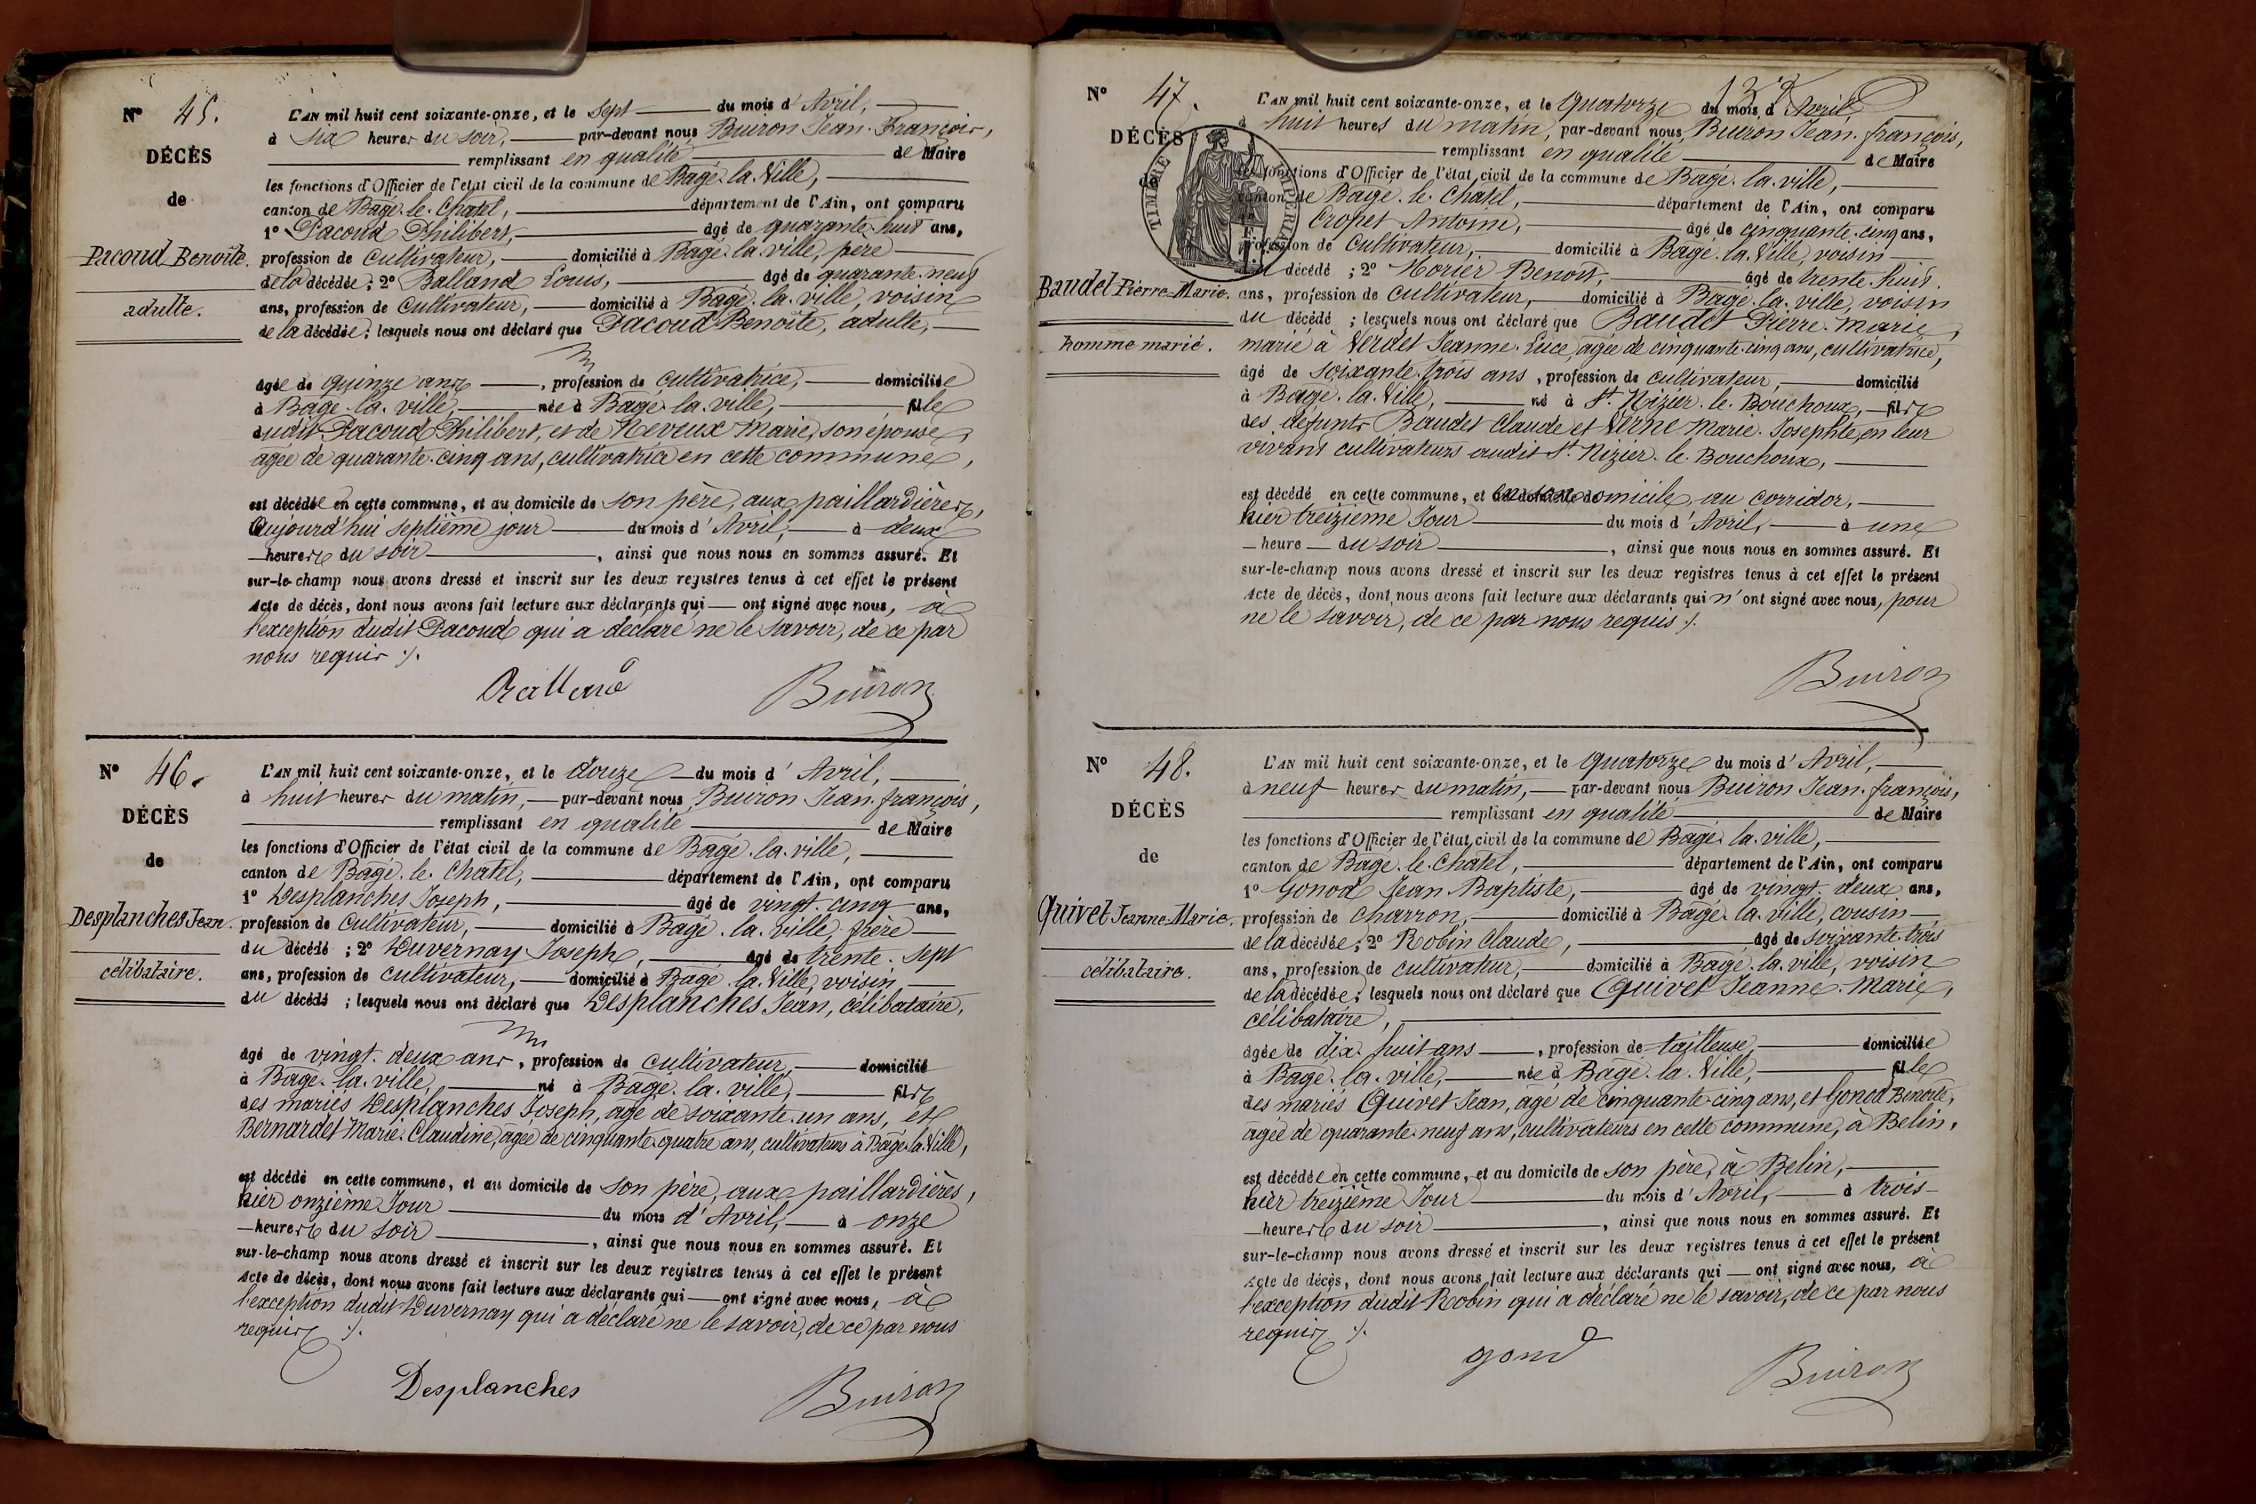 N° 45.
DÉCÈS
de
Pacoud Benoîte.
adulte.
L'AN mil huit cent soixante-onze, et le sept du mois d'Avril,
à six heures du soir, par-devant nous Buiron Jean-François,
remplissant en qualité de Maire
les fonctions d'Officier de l'état civil de la commune de Bâgé-la-Ville,
canton de Bâgé-le-Châtel, département de l'Ain, ont comparu
1° Pacoud Philibert, âgé de quarante-huit ans,
profession de cultivateur, domicilié à Bâgé-la-ville, père
de la décédée ; 2° Balland Louis, âgé de quarante-neuf
ans, profession de cultivateur, domicilié à Bâgé-la-ville, voisin
de la décédée ; lesquels nous ont déclaré que Pacoud Benoîte, adulte,
âgée de quinze ans, profession de cultivatrice, domiciliée
à Bâgé-la-ville, née à Bâgé-la-ville, fille
dudit Pacoud Philibert, et de Neveux Marie, son épouse,
âgée de quarante-cinq ans, cultivatrice en cette commune,
est décédée en cette commune, et au domicile de son père, aux paillardières,
Aujourd'hui septième jour du mois d'Avril, à deux
heures du soir, ainsi que nous nous en sommes assuré. Et
sur-le-champ nous avons dressé et inscrit sur les deux registres tenus à cet effet le présent
Acte de décès, dont nous avons fait lecture aux déclarants qui ont signé avec nous, à
l'exception dudit Pacoud qui a déclaré ne le savoir, de ce par
nous requis ./.
Balland Buiron
N° 46.
DÉCÈS
de
Desplanches Jean.
célibataire.
L'AN mil huit cent soixante-onze, et le douze du mois d'Avril,
à huit heures du matin, par-devant nous Buiron Jean-françois,
remplissant en qualité de Maire
les fonctions d'Officier de l'état civil de la commune de Bâgé-la-ville,
canton de Bâgé-le-Châtel, département de l'Ain, ont comparu
1° Desplanches Joseph, âgé de vingt-cinq ans,
profession de cultivateur, domicilié à Bâgé-la-ville frère
du décédé ; 2° Duvernay Joseph, âgé de trente-sept
ans, profession de cultivateur, domicilié à Bâgé-la-Ville, voisin
du décédé ; lesquels nous ont déclaré que Desplanches Jean, célibataire,
âgé de vingt-deux ans, profession de cultivateur, domicilié
à Bâgé-la-ville, né à Bâgé-la-ville, fils
des mariés Desplanches Joseph, âgé de soixante-un ans, et
Bernardet Marie-Claudine, âgée de cinquante-quatre ans, cultivateurs à Bâgé-la-Ville,
est décédé en cette commune, et au domicile de son père, aux paillardières,
hier onzième Jour du mois d'Avril, à onze
heures du soir, ainsi que nous nous en sommes assuré. Et
sur-le-champ nous avons dressé et inscrit sur les deux registres tenus à cet effet le présent
Acte de décès, dont nous avons fait lecture aux déclarants qui ont signé avec nous, à
l'exception dudit Duvernay qui a déclaré ne le savoir, de ce par nous
requis ./.
Desplanches Buiron
N° 47.
DÉCÈS
de
TIMBRE IMPERIAL
Baudet Pierre-Marie.
homme marié.
L'AN mil huit cent soixante-onze, et le Quatorze du mois d'Avril,
à huit heures du matin, par-devant nous Buiron Jean-françois,
remplissant en qualité de Maire
les fonctions d'Officier de l'état civil de la commune de Bâgé-la-ville,
canton de Bâgé-le-Châtel, département de l'Ain, ont comparu
Cropet Antoine, âgé de cinquante-cinq ans,
profession de cultivateur, domicilié à Bâgé-la-Ville, voisin
du décédé ; 2° Morier Benoit, âgé de trente-huit
ans, profession de cultivateur, domicilié à Bâgé-la-ville, voisin
du décédé ; lesquels nous ont déclaré que Baudet Pierre-Marie,
marié à Verdet Jeanne-Luce, âgée de cinquante-cinq ans, cultivatrice,
âgé de soixante-trois ans, profession de cultivateur, domicilié
à Bâgé-la-Ville, né à St. Nizier-le-Bouchoux, fils
des défunts Baudet Claude et Verne Marie-Josephte, en leur
vivant cultivateurs audit St. Nizier-le-Bouchoux,
est décédé en cette commune, et en son domicile, au corridor,
hier treizième Jour du mois d'Avril, à une
heure du soir, ainsi que nous nous en sommes assuré. Et
sur-le-champ nous avons dressé et inscrit sur les deux registres tenus à cet effet le présent
Acte de décès, dont nous avons fait lecture aux déclarants qui n'ont signé avec nous, pour
ne le savoir, de ce par nous requis ./.
Buiron
N° 48.
DÉCÈS
de
Quivet Jeanne-Marie.
célibataire.
L'AN mil huit cent soixante-onze, et le Quatorze du mois d'Avril,
à neuf heures du matin, par-devant nous Buiron Jean-françois,
remplissant en qualité de Maire
les fonctions d'Officier de l'état civil de la commune de Bâgé-la-ville,
canton de Bâgé-le-Châtel, département de l'Ain, ont comparu
1° Gonod Jean Baptiste, âgé de vingt-deux ans,
profession de charron, domicilié à Bâgé-la-ville, cousin
de la décédée ; 2° Robin Claude, âgé de soixante-trois
ans, profession de cultivateur, domicilié à Bâgé-la-ville, voisin
de la décédée ; lesquels nous ont déclaré que Quivet Jeanne-Marie,
célibataire,
âgée de dix-huit ans, profession de tailleuse, domiciliée
à Bâgé-la-ville, née à Bâgé-la-Ville, fille
des mariés Quivet Jean, âgé de cinquante-cinq ans, et Gonod Benoîte,
âgée de quarante-neuf ans, cultivateurs en cette commune, à Belin,
est décédée en cette commune, et au domicile de son père, à Belin,
hier treizième Jour du mois d'Avril, à trois
heures du soir, ainsi que nous nous en sommes assuré. Et
sur-le-champ nous avons dressé et inscrit sur les deux registres tenus à cet effet le présent
Acte de décès, dont nous avons fait lecture aux déclarants qui ont signé avec nous, à
l'exception dudit Robin qui a déclaré ne le savoir, de ce par nous
requis ./.
gonod Buiron